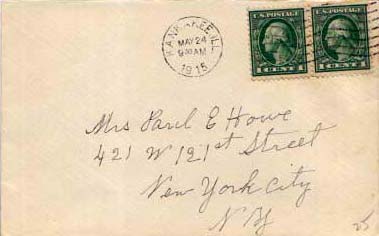 KANKAKEE, ILL.
MAY 24
9 30 AM
1915
U.S. POSTAGE
1 CENT 1
U.S. POSTAGE
1 CENT 1
Mrs Paul E Howe
421 W 121st Street
New York City
N Y